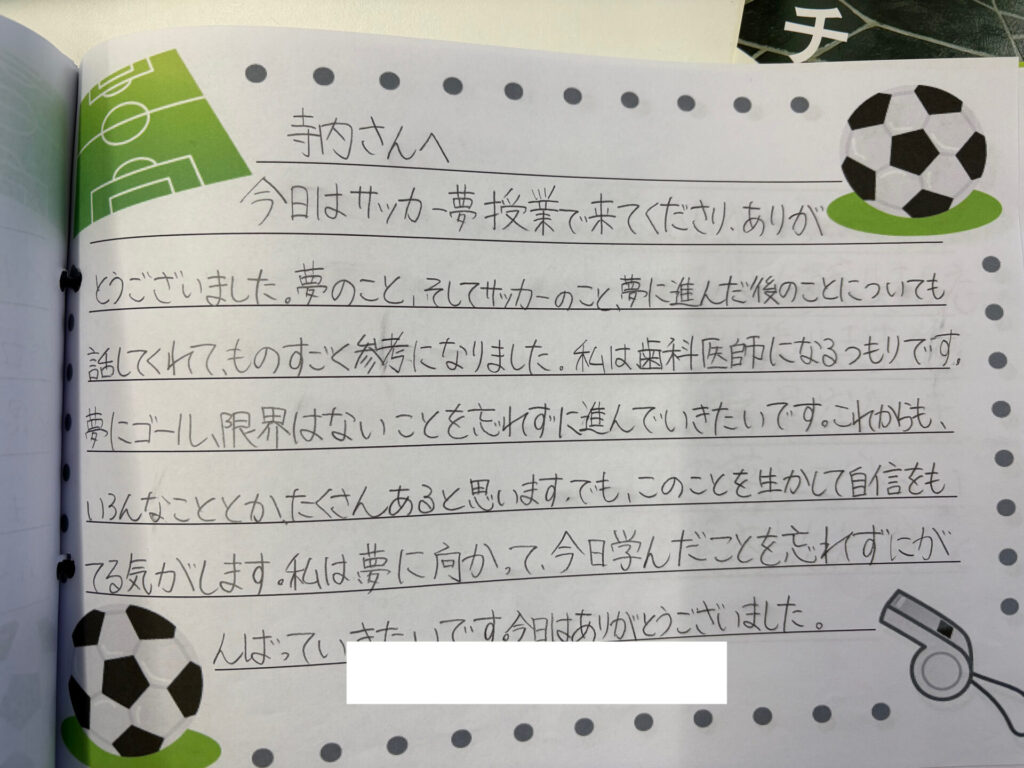 チ
寺内さんへ
今日はサッカー夢授業で来てくださり、ありが
とうございました。夢のこと、そしてサッカーのこと、夢に進んだ後のことについても
話してくれて、ものすごく参考になりました。私は歯科医師になるつもりです。
夢にゴール、限界はないことを忘れずに進んでいきたいです。これからも、
いろんなこととか、たくさんあると思います。でも、このことを生かして自信をも
てる気がします。私は夢に向かって、今日学んだことを忘れずにが
んばっていきたいです。今日はありがとうございました。